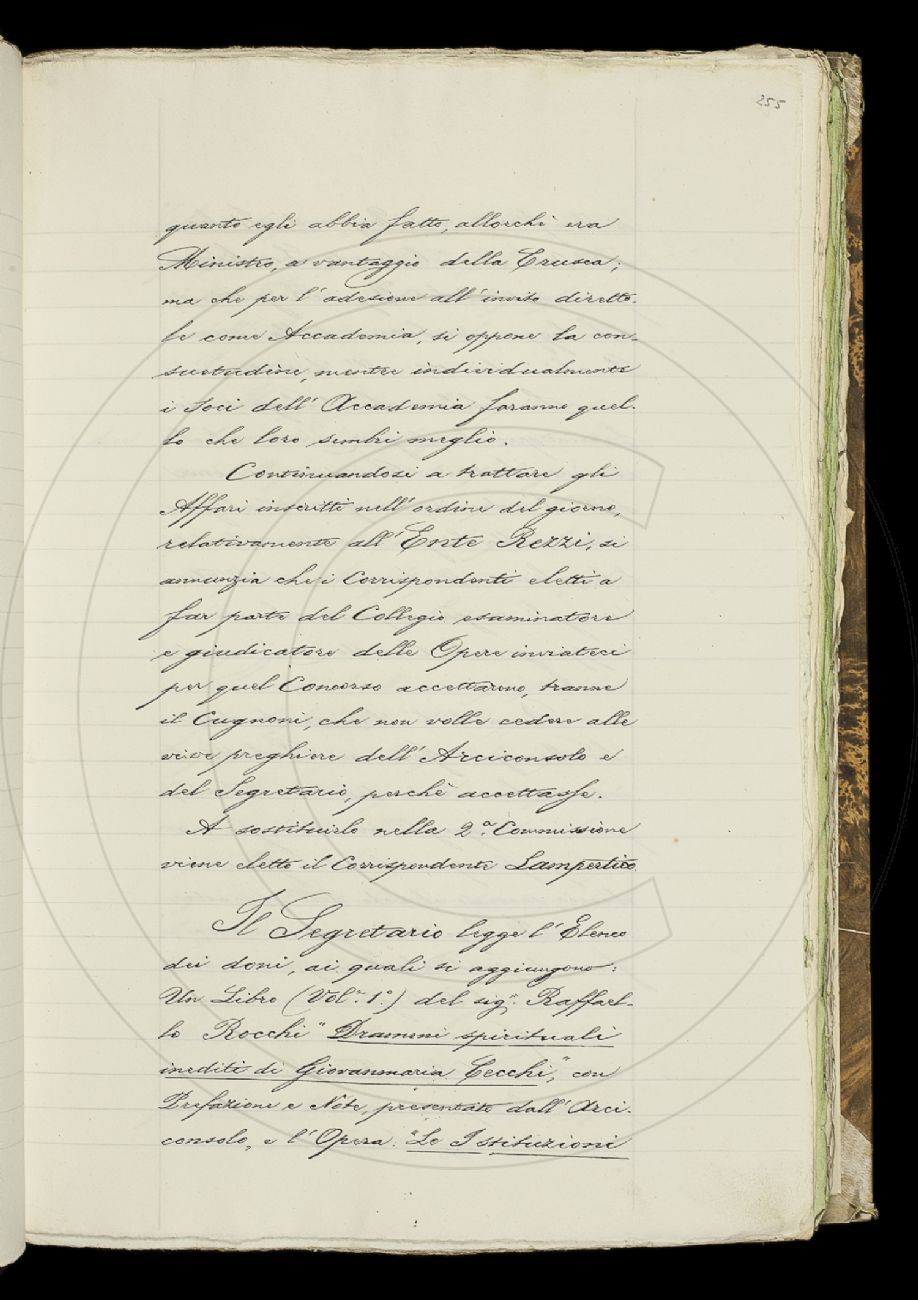 555
quanto egli abbia fatto, allorchè era
Ministro, a vantaggio della Crusca;
ma che per l'adesione all'invito diretto-
le come Accademia, si oppone la con-
suetudine, mentre individualmente
i Soci dell'Accademia faranno quel-
lo che loro sembri meglio.
Continuandosi a trattare gli
Affari inscritti nell'ordine del giorno,
relativamente all'Ente Rezzi, si
annunzia che i Corrispondenti eletti a
far parte del Collegio esaminatore
e giudicatore delle Opere inviateci
per quel Concorso accettarono, tranne
il Cugnoni, che non volle cedere alle
vive preghiere dell'Arciconsolo e
del Segretario, perchè accettasse.
A sostituirlo nella 2ª. Commissione
viene eletto il Corrispondente Lampertico
Il Segretario legge l'Elenco
dei doni, ai quali si aggiungono:
Un Libro (Vol. 1.º) del sig. Raffael-
lo Rocchi "Drammi spirituali
inediti di Giovanmaria Cecchi", con
Prefazione e Note, presentato dall'Arci-
consolo, e l'Opera: "Le Istituzioni